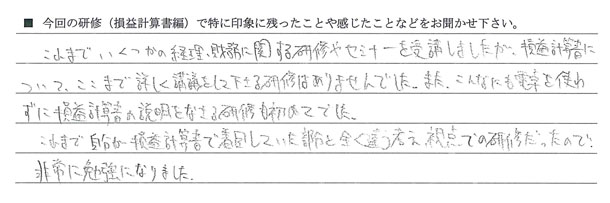 ■ 今回の研修（損益計算書編）で特に印象に残ったことや感じたことなどをお聞かせ下さい。
これまでいくつかの経理・財務に関する研修やセミナーを受講しましたが、損益計算書に
ついて、ここまで詳しく講議をして下さる研修はありませんでした。また、こんなにも電卓を使わ
ずに損益計算書の説明をなさる研修も初めてでした。
これまで自分が損益計算書で着目していた部分と全く違う考え、視点での研修だったので、
非常に勉強になりました。